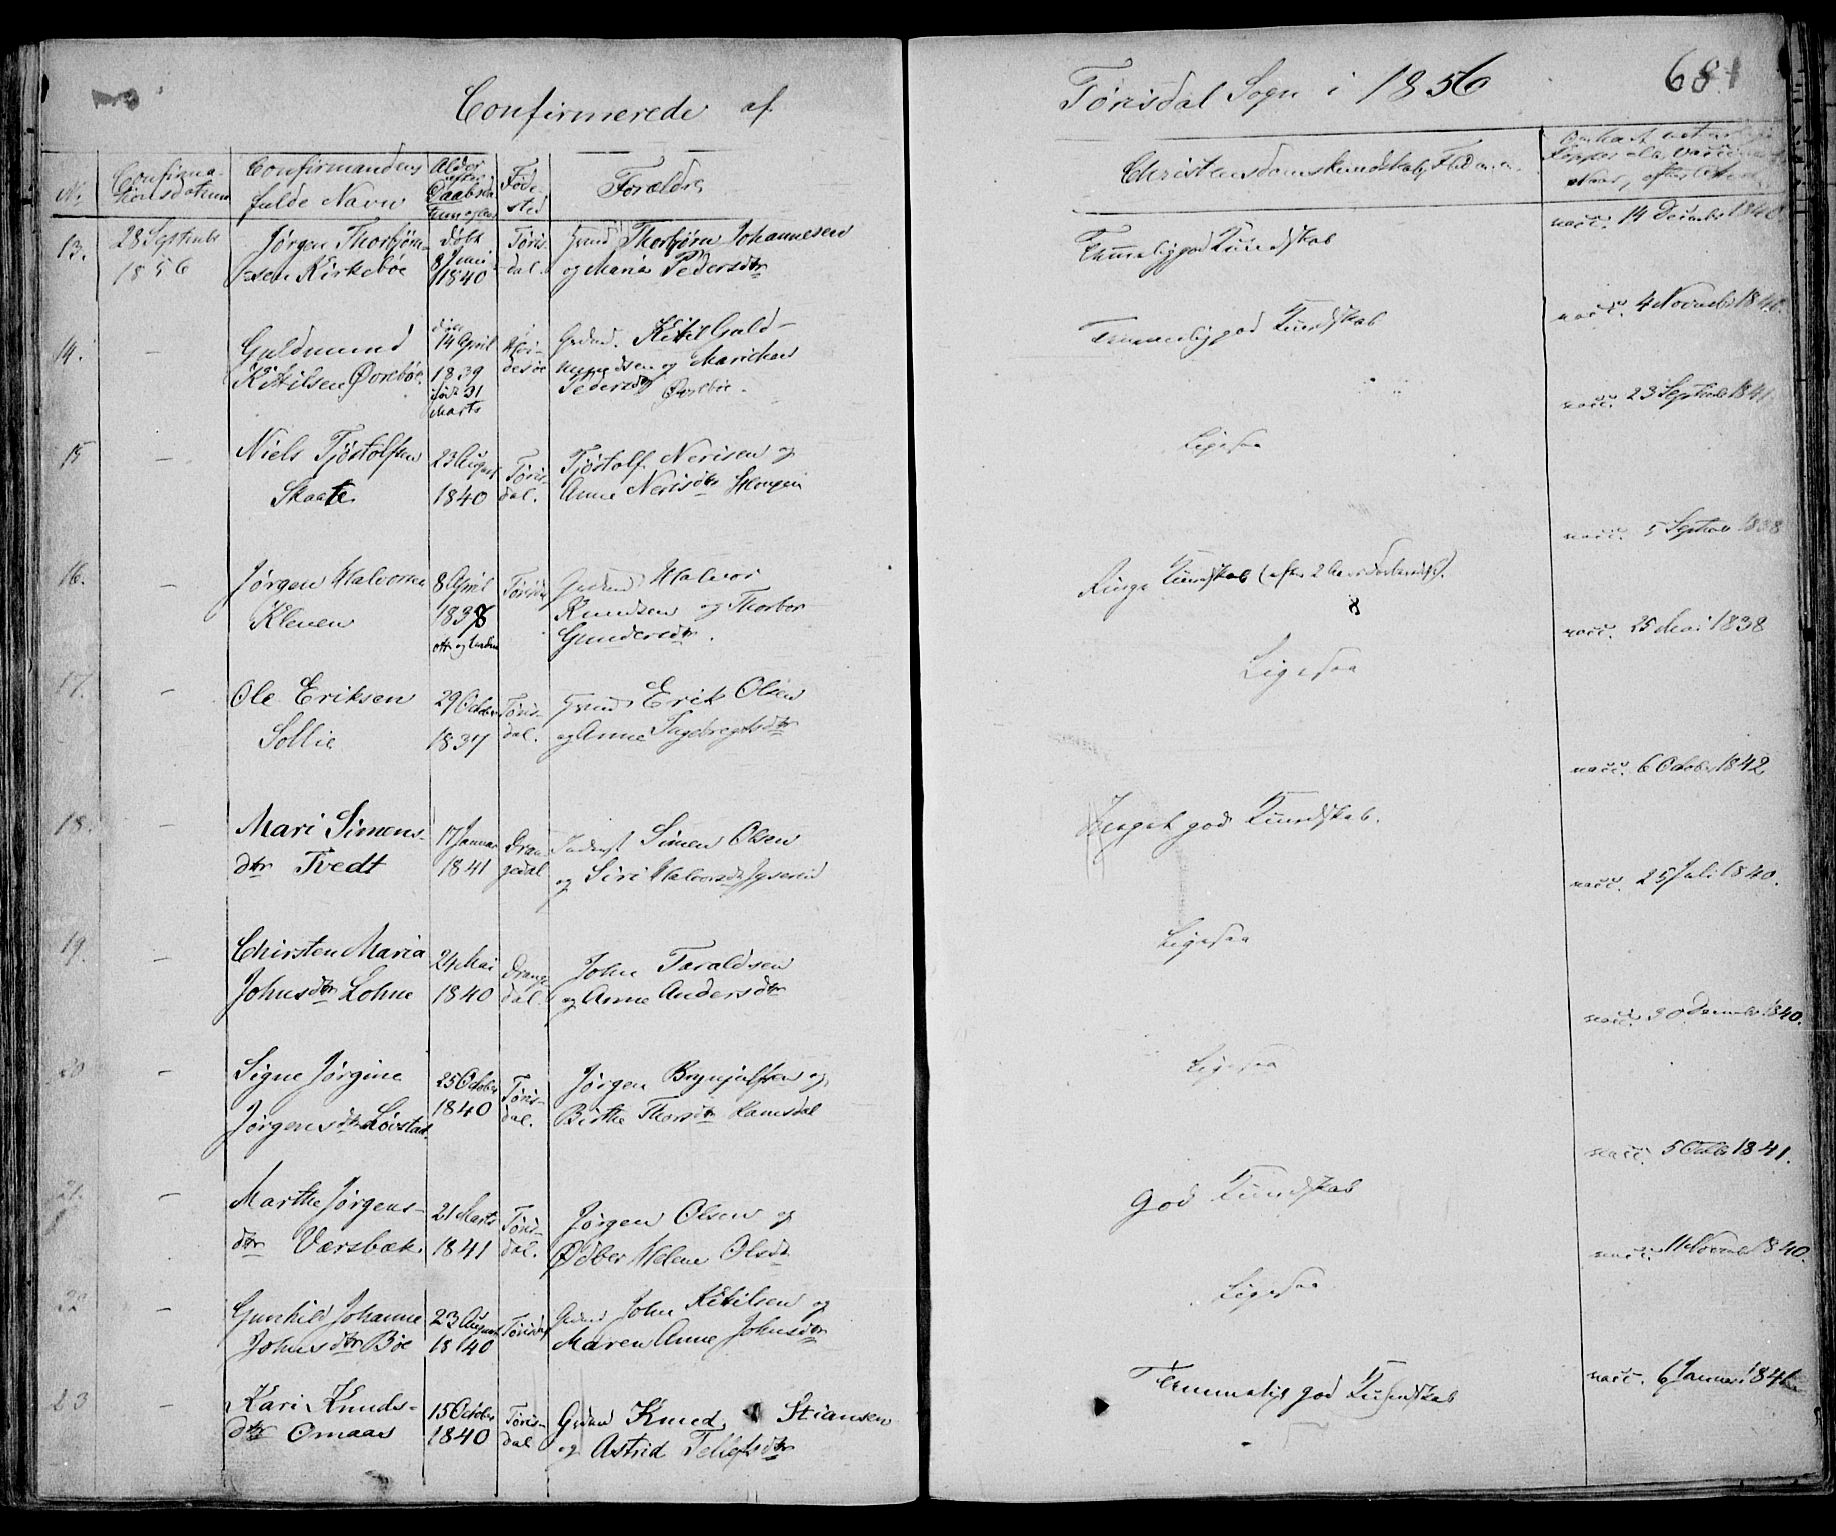 Confirmerede af Törisdal Sogn i 1856
681
No.
Confirma-
tionsdatum
Confirmandens
fulde Navn
Alder
efter
Daabsda-
Føde
sted
Forældre
Christendomskundskab, Flid m.m.
13. 28 September
1856
Jørgen Thorbjørn-
sen Kirkebøe
døbt
8 Juni
1840
Töris
dal.
Grmd Thorbjørn Johannesen
og Maria Pedersdtr
Temmelig god Kundskab
vacc. 14 December 1840
14. —
Guldmund
Kittilsen Øvrebøe
14 April
1839
født 31
Marts
Grdmd. Kittil Guld-
mundsen og Marichen
Pedersdtr
Øvrebøe.
Temmelig god Kundskab
vacc. 4 Novembr
15 —
Niels Tjöstolfsen
Skaate
23 August
1840
Töris-
dal.
Tjöstolf Nerisen og
Anne Nerisdtr
Ligesaa
vacc. 23 Septbr 1841
16. —
Jørgen Halvorsen
Kleven
8 April
1838
Grdmd Halvor
Knudsen og Thorbor
Gundersdtr.
Ringe Kundskab
vacc. 5 Septbr 1838
17. —
Ole Eriksen
Sollie
29 October
1837
Töris-
dal.
Grmd Erik Olsen
og Anne Ingebregtsdtr
Ligesaa
vacc. 25 Mai 1838
18. —
Mari Simens-
dtr Tvedt
17 Januar
1841
Dran
gedal
Simen Olsen
og Siri Halvorsdtr
Meget god Kundskab.
vacc. 6 October 1842
19. —
Chirsten Maria
Johnsdtr Lohne
24 Mai
1840
Drange
dal.
John Taraldsen
og Anne Andersdtr
Ligesaa
vacc. 25 Juli 1840.
20 —
Signe Jørgine
Jørgensdtr Løvstad
25 October
1840
Töris-
dal.
Jørgen Brynjulfsen og
Birthe Thorsdtr
Ligesaa
vacc. 30 December 1840.
21. —
Marthe Jørgens-
dtrVærsbæk
21 Marts
1841
Töris-
dal.
Jørgen Olsen og
Ødber Helene Olsdtr
God Kundskab
vacc. 5 Octbr 1841.
22 —
Gunhild Johanne
Johnsdtr Bøe
23 August
1840
Törisdal
Grdmd John Kittilsen og
Maren Anne Johnsdtr
Ligesaa
vacc. 11 Novembr 1840.
23 —
Kari Knuds-
dtr Omaas
15 October
1840
Töris-
dal
Grdmd Knud Stiansen
og Astrid Tellefsdtr
Temmelig god Kundskab
vacc. 6 Januar 1841